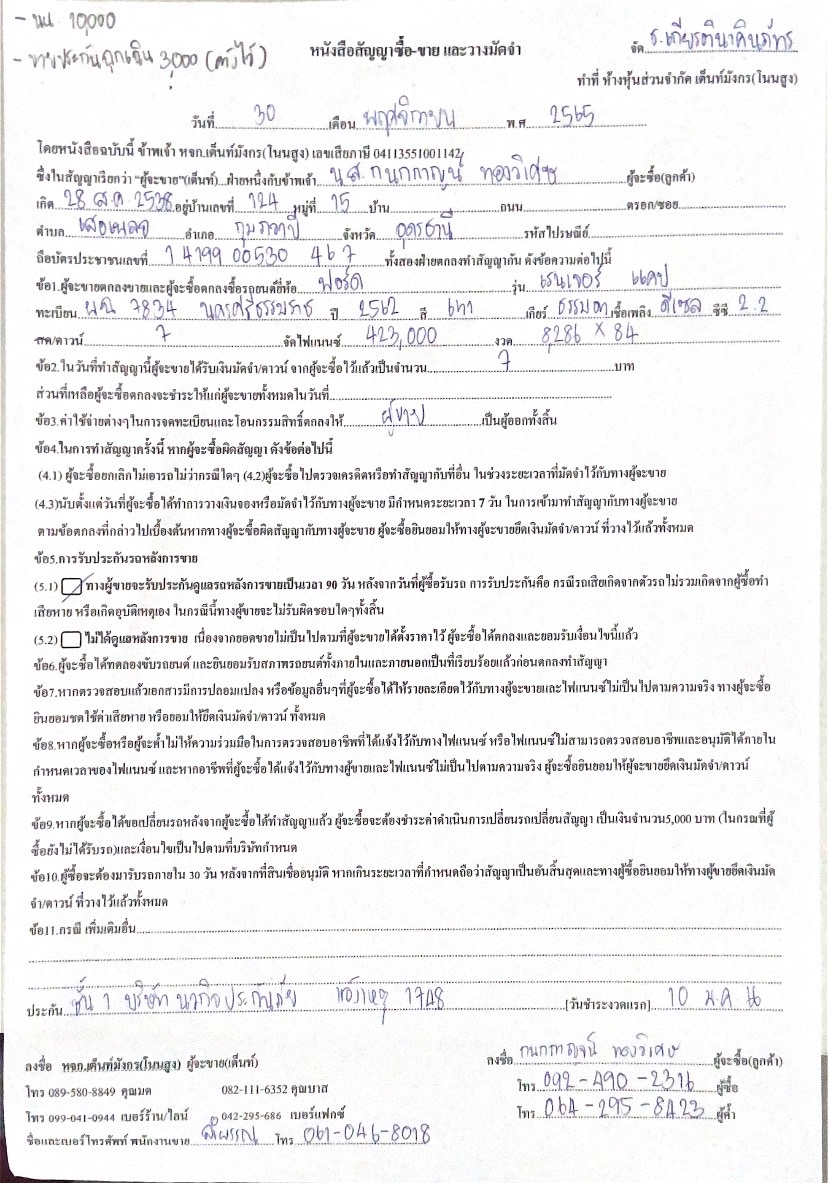 - นน. 10,000
- ขายประกันฉุกเฉิน 3,000 (ค้างไว้)
หนังสือสัญญาซื้อ-ขาย และวางมัดจำ
จัด ธ.เกียรตินาคินภัทร
ทำที่ ห้างหุ้นส่วนจำกัด เต็นท์มังกร(โนนสูง)
วันที่ 30 เดือน พฤศจิกายน พ.ศ 2565
โดยหนังสือฉบับนี้ ข้าพเจ้า หจก.เต็นท์มังกร(โนนสูง) เลขเสียภาษี 04113551001142
ซึ่งในสัญญาเรียกว่า "ผู้จะขาย"(เต็นท์)...ฝ่ายหนึ่งกับข้าพเจ้า น.ส. กนกกาญน์ ทองวิเศษ ผู้จะซื้อ(ลูกค้า)
เกิด 28 ส.ค. 2538 อยู่บ้านเลขที่ 124 หมู่ที่ 15 บ้าน ถนน ตรอก/ซอย
ตำบล เสอเพลอ อำเภอ กุมภวาปี จังหวัด อุดรธานี รหัสไปรษณีย์
ถือบัตรประชาชนเลขที่ 1 4199 00530 46 7 ทั้งสองฝ่ายตกลงทำสัญญากัน ดังข้อความต่อไปนี้
ข้อ1.ผู้จะขายตกลงขายและผู้จะซื้อตกลงซื้อรถยนต์ยี่ห้อ ฟอร์ด รุ่น เรนเจอร์ แคป
ทะเบียน ผฉ 7834 นครศรีธรรมราช ปี 2562 สี เทา เกียร์ ธรรมดา เชื้อเพลิง ดีเซล ซีซี 2.2
สด/ดาวน์ 7 จัดไฟแนนซ์ 423,000 งวด 8,286 x 84
ข้อ2.ในวันที่ทำสัญญานี้ผู้จะขายได้รับเงินมัดจำ/ดาวน์ จากผู้จะซื้อไว้แล้วเป็นจำนวน 7 บาท
ส่วนที่เหลือผู้จะซื้อตกลงจะชำระให้แก่ผู้จะขายทั้งหมดในวันที่
ข้อ3.ค่าใช้จ่ายต่างๆในการจดทะเบียนและโอนกรรมสิทธิ์ตกลงให้ ผู้ขาย เป็นผู้ออกทั้งสิ้น
ข้อ4.ในการทำสัญญาครั้งนี้ หากผู้จะซื้อผิดสัญญา ดังข้อต่อไปนี้
(4.1) ผู้จะซื้อยกเลิกไม่เอารถไม่ว่ากรณีใดๆ (4.2)ผู้จะซื้อไปตรวจเครดิตหรือทำสัญญากับที่อื่น ในช่วงระยะเวลาที่มัดจำไว้กับทางผู้จะขาย
(4.3)นับตั้งแต่วันที่ผู้จะซื้อได้ทำการวางเงินจองหรือมัดจำไว้กับทางผู้จะขาย มีกำหนดระยะเวลา 7 วัน ในการเข้ามาทำสัญญากับทางผู้จะขาย
ตามข้อตกลงที่กล่าวไปเบื้องต้นหากทางผู้จะซื้อผิดสัญญากับทางผู้จะขาย ผู้จะซื้อยินยอมให้ทางผู้จะขายยึดเงินมัดจำ/ดาวน์ ที่วางไว้แล้วทั้งหมด
ข้อ5.การรับประกันรถหลังการขาย
(5.1) ทางผู้ขายจะรับประกันดูแลรถหลังการขายเป็นเวลา 90 วัน หลังจากวันที่ผู้ซื้อรับรถ การรับประกันคือ กรณีรถเสียเกิดจากตัวรถไม่รวมเกิดจากผู้ซื้อทำ
เสียหาย หรือเกิดอุบัติเหตุเอง ในกรณีนี้ทางผู้ขายจะไม่รับผิดชอบใดๆทั้งสิ้น
(5.2) ไม่ได้ดูแลหลังการขาย เนื่องจากยอดขายไม่เป็นไปตามที่ผู้จะขายได้ตั้งราคาไว้ ผู้จะซื้อได้ตกลงและยอมรับเงื่อนไขนี้แล้ว
ข้อ6.ผู้จะซื้อได้ทดลองขับรถยนต์ และยินยอมรับสภาพรถยนต์ทั้งภายในและภายนอกเป็นที่เรียบร้อยแล้วก่อนตกลงทำสัญญา
ข้อ7.หากตรวจสอบแล้วเอกสารมีการปลอมแปลง หรือข้อมูลอื่นๆที่ผู้จะซื้อได้ให้รายละเอียดไว้กับทางผู้จะขายและไฟแนนซ์ไม่เป็นไปตามความจริง ทางผู้จะซื้อ
ยินยอมชดใช้ค่าเสียหาย หรือยอมให้ยึดเงินมัดจำ/ดาวน์ ทั้งหมด
ข้อ8.หากผู้จะซื้อหรือผู้จะค้ำไม่ให้ความร่วมมือในการตรวจสอบอาชีพที่ได้แจ้งไว้กับทางไฟแนนซ์ หรือไฟแนนซ์ไม่สามารถตรวจสอบอาชีพและอนุมัติได้ภายใน
กำหนดเวลาของไฟแนนซ์ และหากอาชีพที่ผู้จะซื้อได้แจ้งไว้กับทางผู้ขายและไฟแนนซ์ไม่เป็นไปตามความจริง ผู้จะซื้อยินยอมให้ผู้จะขายยึดเงินมัดจำ/ดาวน์
ทั้งหมด
ข้อ9.หากผู้จะซื้อได้ขอเปลี่ยนรถหลังจากผู้จะซื้อได้ทำสัญญาแล้ว ผู้จะซื้อจะต้องชำระค่าดำเนินการเปลี่ยนรถเปลี่ยนสัญญา เป็นเงินจำนวน5,000 บาท (ในกรณที่ผู้
ซื้อยังไม่ได้รับรถ)และเงื่อนไขเป็นไปตามที่บริษัทกำหนด
ข้อ10.ผู้ซื้อจะต้องมารับรถภายใน 30 วัน หลังจากที่สินเชื่ออนุมัติ หากเกินระยะเวลาที่กำหนดถือว่าสัญญาเป็นอันสิ้นสุดและทางผู้ซื้อยินยอมให้ทางผู้ขายยึดเงินมัด
จำ/ดาวน์ ที่วางไว้แล้วทั้งหมด
ข้อ11.กรณี เพิ่มเติมอื่น
ประกัน ชั้น 1 บริษัท นวกิจประกันภัย แจ้งเหตุ 1748 [วันชำระงวดแรก] 10 ม.ค
ลงชื่อ หจก.เต็นท์มังกร(โนนสูง) ผู้จะขาย(เต็นท์)
ลงชื่อ กนกกาญจน์ ทองวิเศษ ผู้จะซื้อ(ลูกค้า)
โทร 089-580-8849 คุณมด 082-111-6352 คุณบาส
โทร 092-490-2316 ผู้ซื้อ
โทร 099-041-0944 เบอร์ร้าน/ไลน์ 042-295-686 เบอร์แฟกซ์
โทร 064-295-8423 ผู้ค้ำ
ชื่อและเบอร์โทรศัพท์ พนักงานขาย โทร 061-046-8018